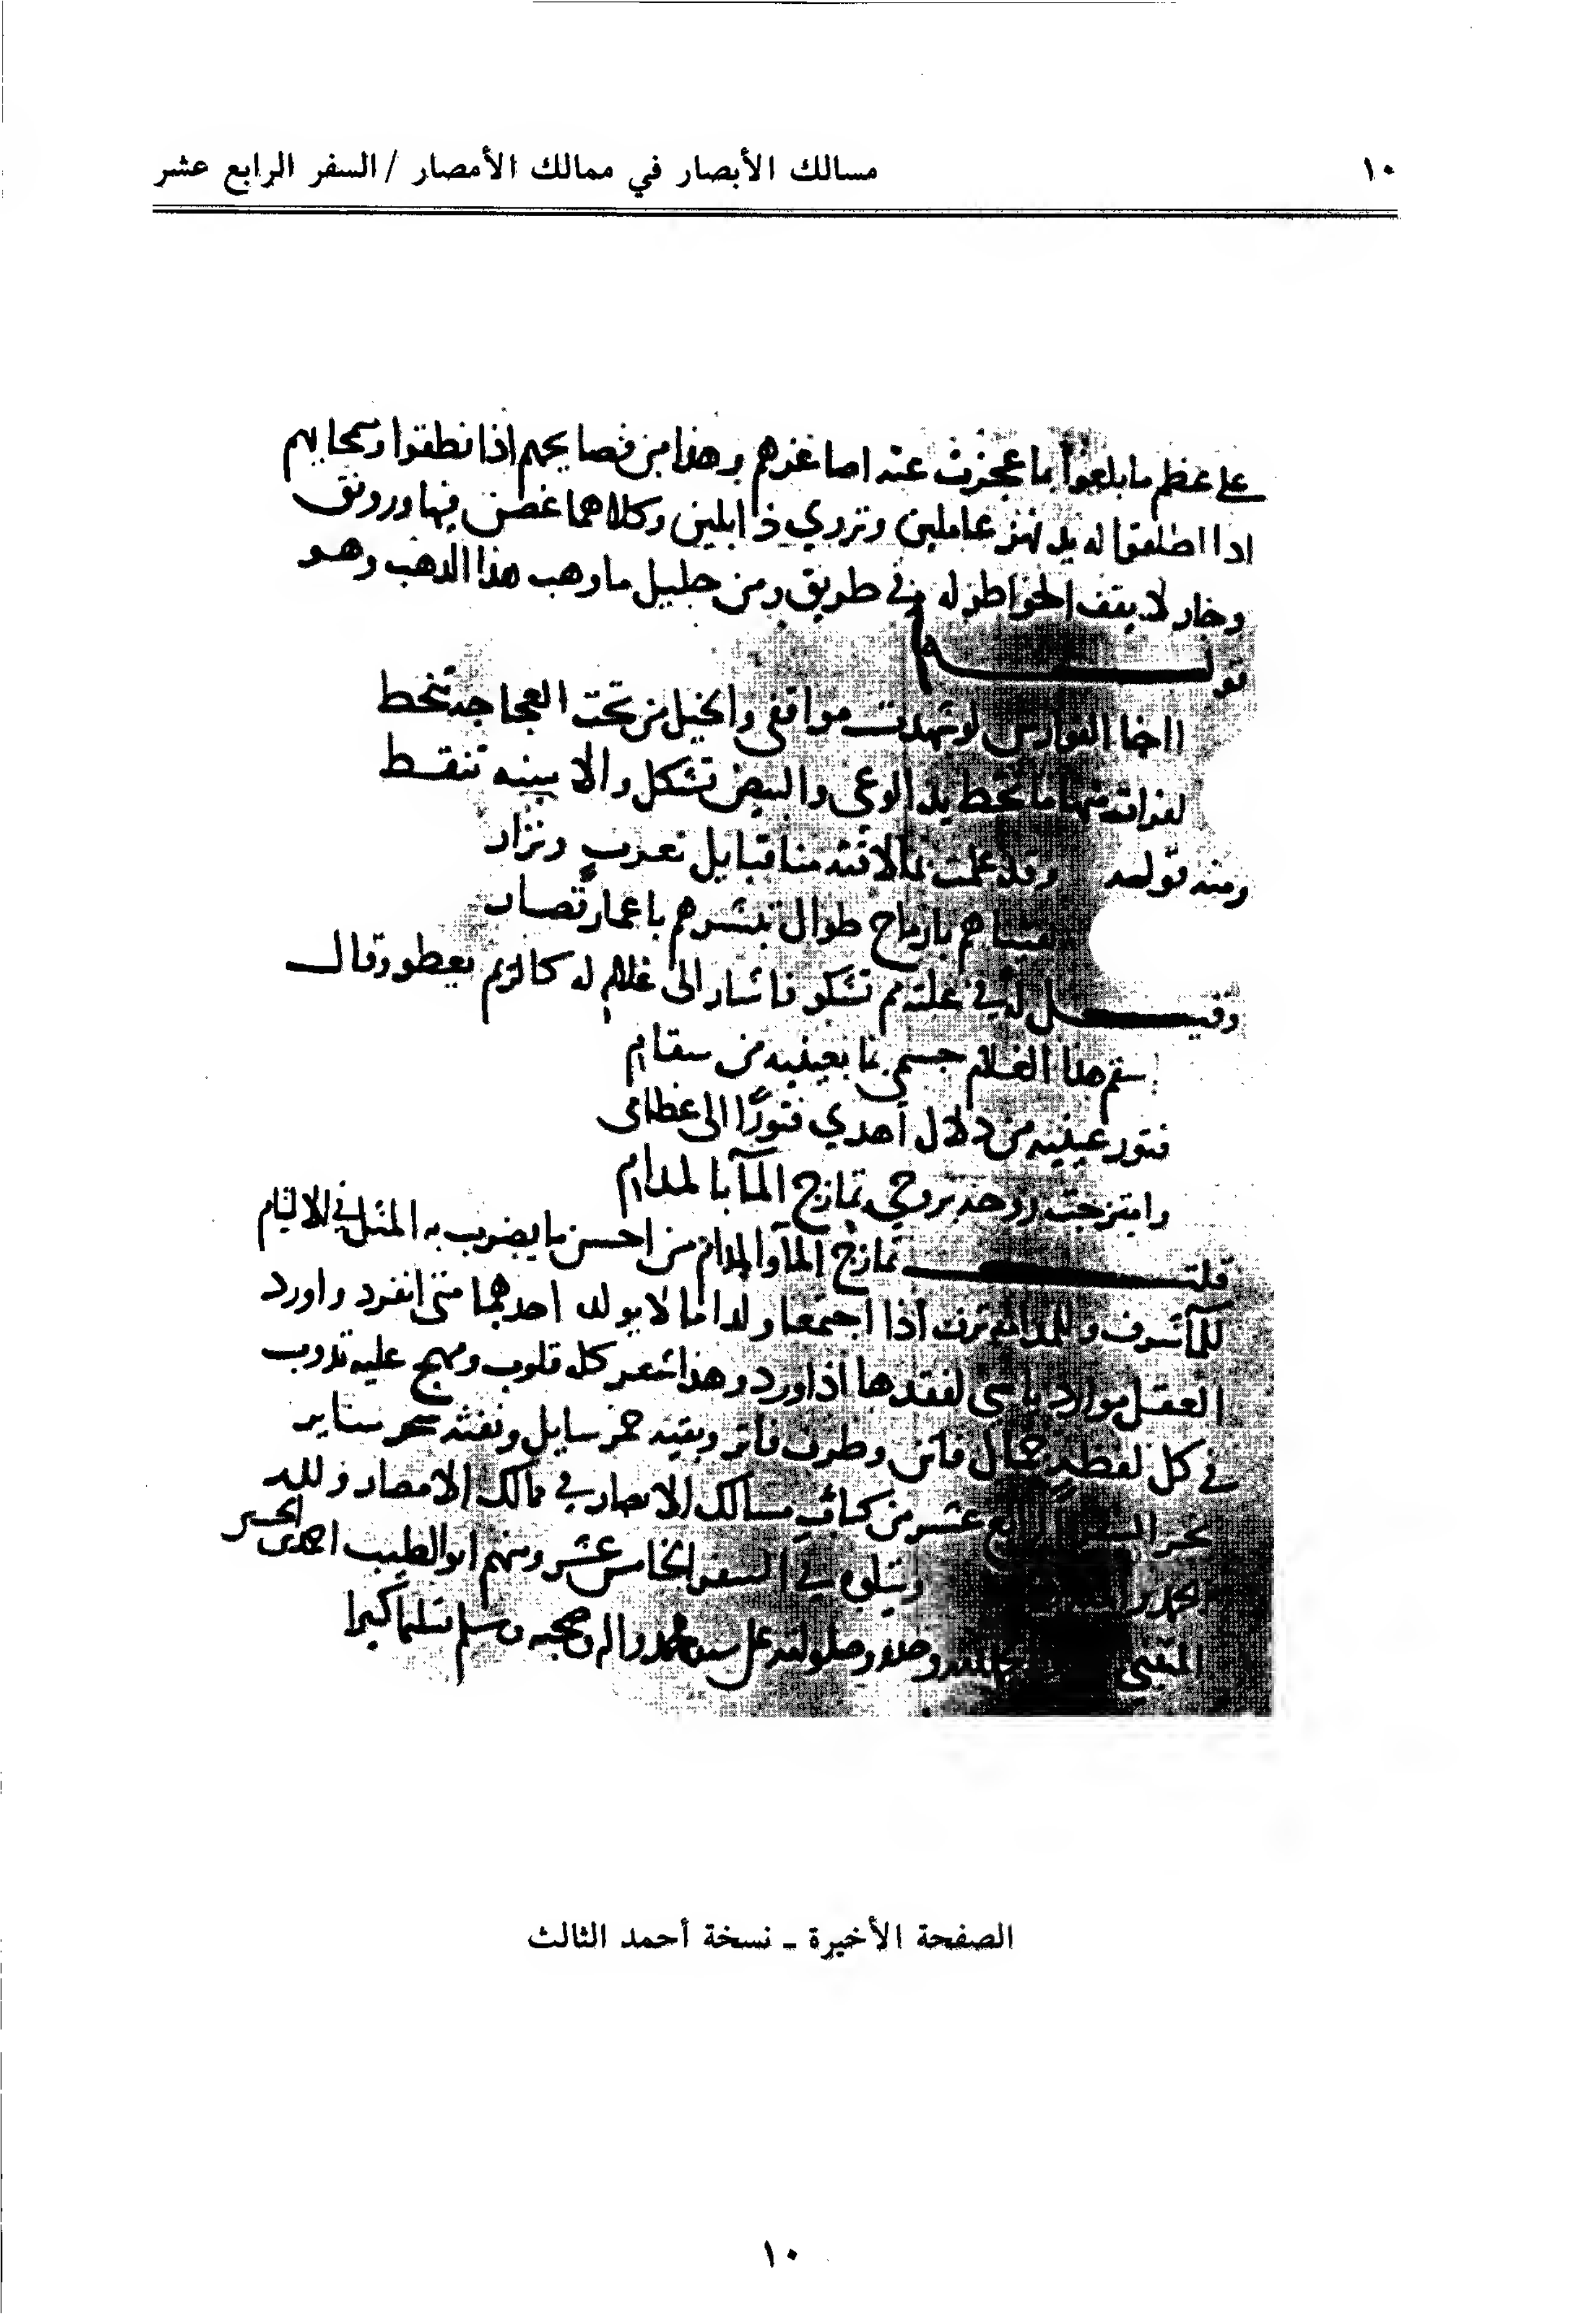 ١٠
مسالك الأبصار في ممالك الأمصار / السفر الرابع عشر
على عظم ما بلغوا ما عجزت عنه اصاغرهم وهذا من فصايحهم اذا نطقوا وسحايبهم
اذا اطلقوا له يد تهز عاملين وتروي ذابلين وكلاهما غصن فيها ورونق
لا يقف الخواطر له في طريق ومن جليل ما وهب هذا الذهب وهو
قولـــه
الفوارس لو شهدت مواقفي والخيل من تحت العجاجة تنحط
لقرات منها ما تخط يد الوغى والبيض تشكل والاسنة تنقط
ومنه قوله وقد علمت بما لاقته منا قبايل يعرب ونزار
لقيناهم بارماح طوال تبشرهم باعمار قصار
وقيـــل له في علته مم تشكو فاشار الى غلام له كالريم يعطو وقال
سقم هذا الغلام جسمي بما بعينيه من سقام
فتور عينيه من دلال أهدي فتورًا الى عظامي
وامتزجت روحه بروحي تمازج المآ بالمدام
قلت تمازج المآ والمدام من احسن ما يضرب به المثل في الالتيام
للمآ شرف وللمدامة ترف اذا اجتمعا ولدا ما لا يولد احدهما متى انفرد واورد
العقل موارد ياسى لفقدها اذا ورد وهذا شعر كل قلوب ومهج عليه تذوب
في كل لفظة جمال فاتن وطرف فاتر وبقية خمر سايل ونفثة سحر ساير
نجز السفر الرابع عشر من كتاب مسالك الابصار في ممالك الامصار ولله
الحمد ويتلوه في السفر الخامس عشر ومنهم ابو الطيب احمد بن الحسين
المتنبي وحده وصلواته على سيدنا محمد واله وصحبه وسلم تسليما كثيرا
الصفحة الأخيرة - نسخة أحمد الثالث
١٠